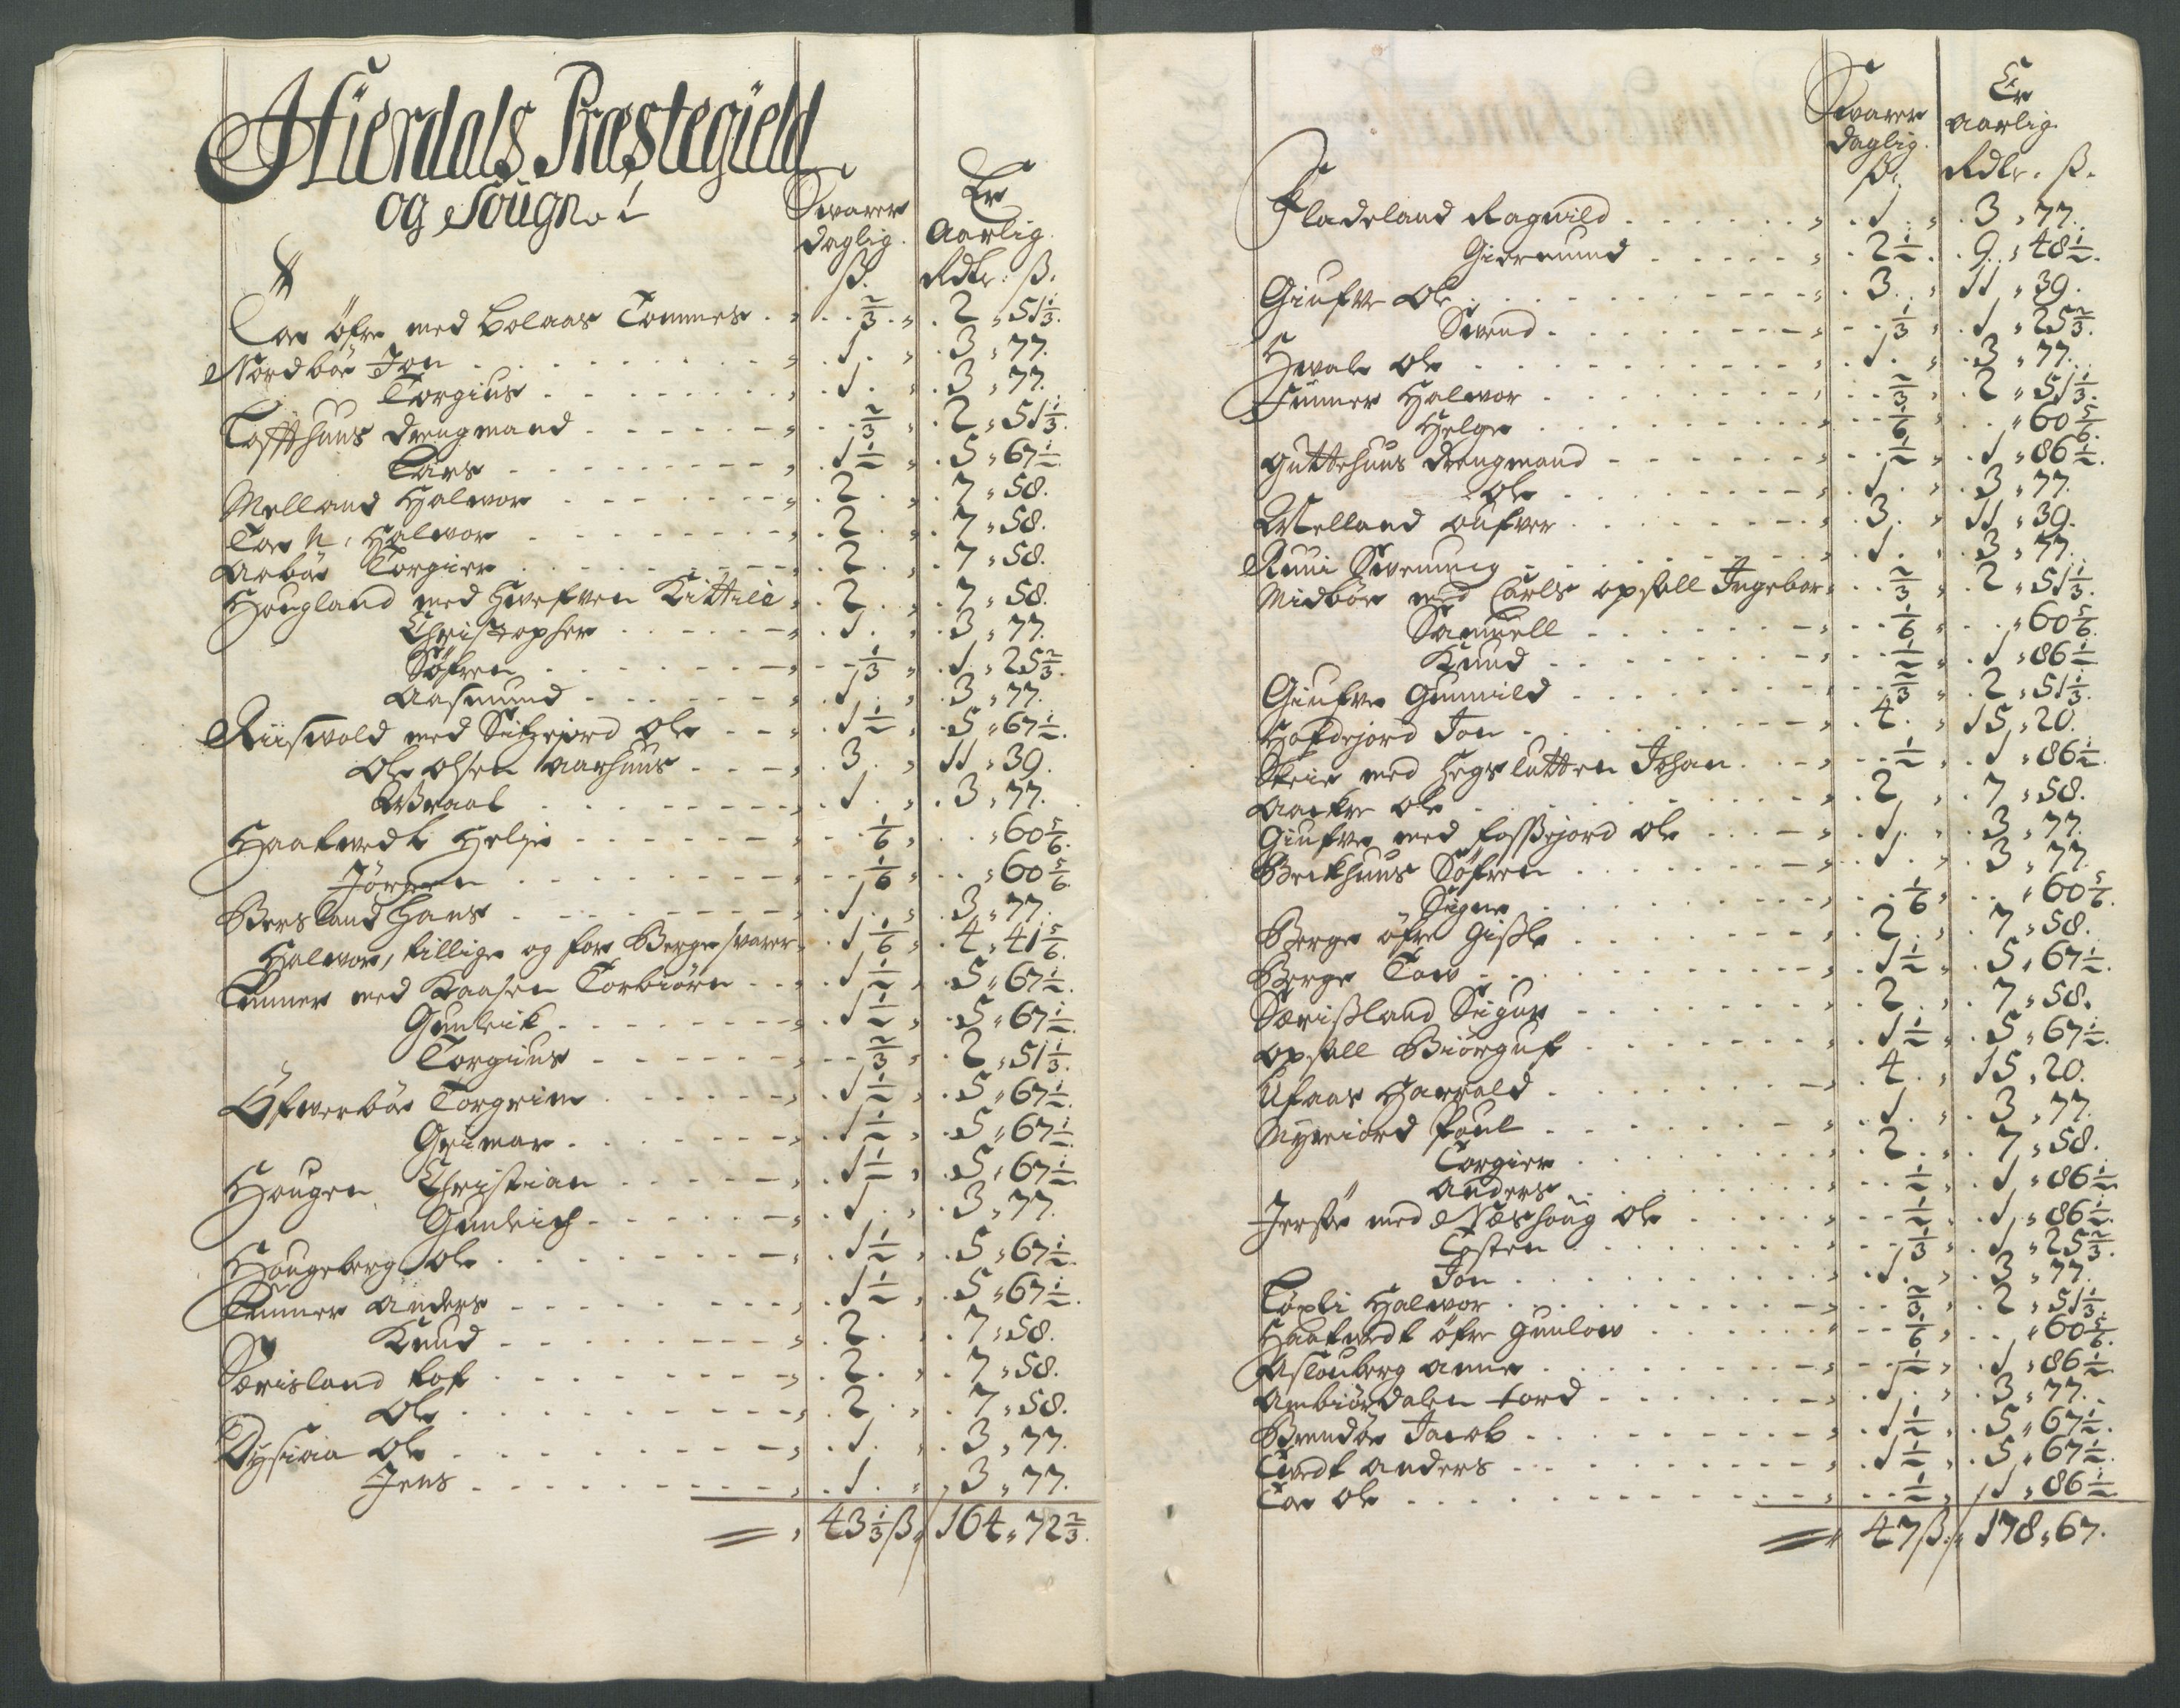 Hierdals Præstegield
og Sougn
Svarer daglig. ß.
Er Aarlig. Rdlr. ß.
Toe öfre med Bolaas Tommes . . 2/3 . 2 , 51 1/3.
Nordböe Jon . . 1 . 3 , 77.
Torgius . . 1 . 3 , 77.
Toffthuus Drengmand . . 2/3 . 2 , 51 1/3.
Lars . . 1 1/2 . 5 , 67 1/2.
Melland Halvor . . 2 . 7 , 58.
Toe N: Halvor . . 2 . 7 , 58.
Arböe Torgier . . 2 . 7 , 58.
Hougland med Kittil . . 2 . 7 , 58.
Christopher . . 1 . 3 , 77.
Söfren . . 1/3 . 1 , 25 2/3.
Aasmund . . 1 . 3 , 77.
Riisvold med Ole . . 1 1/2 . 5 , 67 1/2.
Ole Olsen Aarhuus . . 3 . 11 , 39.
Wraal . . 1 . 3 , 77.
Haatvedt Helje . . 1/6 . , 60 5/6.
Jörgen . . 1/6 . , 60 5/6.
Bersland Hans . . 1 . 3 , 77.
Halvor, tillige og for Berge svarer . 1 1/6 . 4 , 41 5/6.
Tinner med Kaasen Torbiörn . . 1 1/2 . 5 , 67 1/2.
Gunleik . . 1 1/2 . 5 , 67 1/2.
Torgius . . 2/3 . 2 , 51 1/3.
Öfverböe Torgrim . . 1 1/2 . 5 , 67 1/2.
Grimar . . 1 1/2 . 5 , 67 1/2.
Hougen Christian . . 1 1/2 . 5 , 67 1/2.
Gunleich . . 1 . 3 , 77.
Hougeberg Ole . . 1 1/2 . 5 , 67 1/2.
Tinner Anders . . 1 1/2 . 5 , 67 1/2.
Knud . . 2 . 7 , 58.
Særisland Tof . . 2 . 7 , 58.
Ole . . 2 . 7 , 58.
Dysiaa Ole . . 1 . 3 , 77.
Jens . . 1 . 3 , 77.
43 1/3 ß, 164 , 72 2/3.
Svarer daglig. ß.
Er Aarlig. Rdlr. ß.
Fladeland Ragnild . . 1 . 3 , 77.
Giermund . . 2 1/2 . 9 , 48 1/2.
Giufve Ole . . 3 . 11 , 39.
Svend . . 1/3 . 1 , 25 2/3.
Hvale Ole . . 1 . 3 , 77.
Tinner Halvor . . 2/3 . 2 , 51 1/3.
Helge . . 1/6 . , 60 5/6.
Guttehuus Drengmand . . 1/2 . 1 , 86 1/2.
Ole . . 1 . 3 , 77.
Melland Oufver . . 3 . 11 , 39.
Rui Svennig . . 1 . 3 , 77.
Midböe med Carls opsall Ingebor . 2/3 . 2 , 51 1/3.
Samuell . . 1/6 . , 60 5/6.
Knud . . 1/2 . 1 , 86 1/2.
Giufve Gunnild . . 2/3 . 2 , 51 1/3.
Hofdejord Jon . . 4 . 15 , 20.
Skeie med Johan . . 1/2 . 1 , 86 1/2.
Aacke Ole . . 2 . 7 , 58.
Giufve med Fossejord Ole . . 1 . 3 , 77.
Beckhuus Söfren . . 1 . 3 , 77.
Signe . . 1/6 . , 60 5/6.
Berge öfre Gisle . . 2 . 7 , 58.
Berge Tov . . 1 1/2 . 5 , 67 1/2.
Særisland Sigur . . 2 . 7 , 58.
Opsall Biörguf . . 1 1/2 . 5 , 67 1/2.
Ufaas Harrald . . 4 . 15 , 20.
Myrejord Poul . . 1 . 3 , 77.
Torgier . . 2 . 7 , 58.
Anders . . 1/2 . 1 , 86 1/2.
med Næshoug Ole . . 1/2 . 1 , 86 1/2.
Tosten . . 1/3 . 1 , 25 2/3.
Jon . . 1 . 3 , 77.
Töpli Halvor . . 2/3 . 2 , 51 1/3.
Haatvedt öfre Gunlov . . 1/6 . , 60 5/6.
Aslouberg Anne . . 1/2 . 1 , 86 1/2.
Ambiördalen Tord . . 1 . 3 , 77.
Brendöe Jacob . . 1 1/2 . 5 , 67 1/2.
Tvedt Anders . . 1 1/2 . 5 , 67 1/2.
Toe Ole . . 1/2 . 1 , 86 1/2
47 ß. 178 , 67.